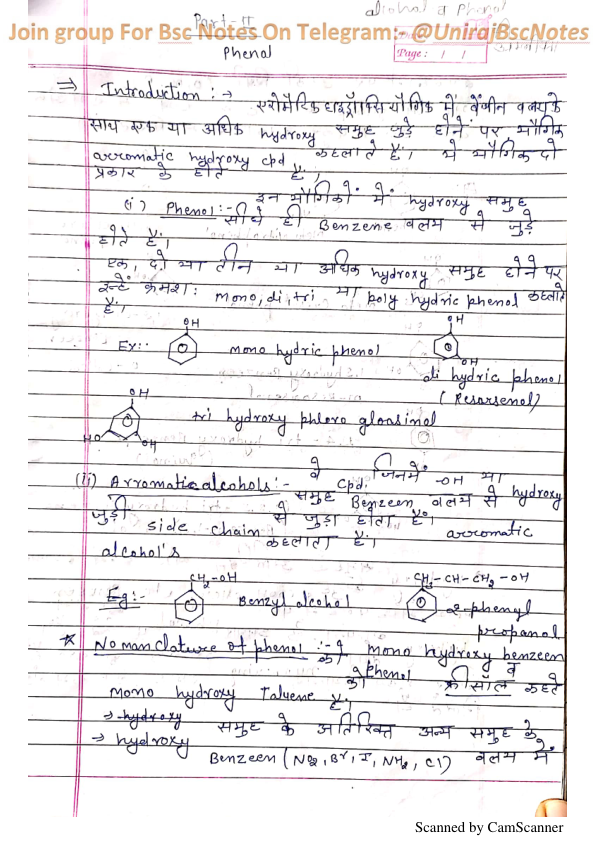 Part-II
alcohol व Phenol
Join group For Bsc Notes On Telegram:- @UnirajBscNotes
Phenol
Page: / /
⇒ Introduction :→
एरोमैटिक हाइड्रॉक्सि यौगिक में बेंजीन वलय के
साथ एक या अधिक hydroxy समुह जुड़े होने पर, यौगिक
arromatic hydroxy cpd कहलाते हैं। ये यौगिक दो
प्रकार के होते हैं।
(i) Phenol:- इन यौगिकों में hydroxy समुह
सीधे ही Benzene वलय से जुड़े
होते हैं।
एक, दो या तीन या अधिक hydroxy समुह होने पर
इन्हें क्रमश: mono, di, tri या poly hydric phenol कहलाते
हैं।
OH
OH
Ex:- mono hydric phenol
OH
di hydric phenol
(Resorsenol)
OH
tri hydroxy phloro gloasinol
HO OH
(ii) Arromatic alcohols:- वे cpd. जिनमें -OH या hydroxy
समुह Benzeen वलय से
जुड़ी side chain से जुड़ा होता हैं। arromatic
alcohol's कहलाता हैं।
CH2-OH
CH3-CH-CH2-OH
Eg:- Benzyl alcohol
2-phenyl
propanol
* Nomanclature of phenol :- mono hydroxy benzeen
को phenol व
mono hydroxy Taluene को क्रीसॉल कहते
हैं।
→ hydroxy
→ hydroxy समुह के अतिरिक्त अन्य समुह के
Benzeen (NO2, Br, I, NH2, Cl) वलय में
Scanned by CamScanner